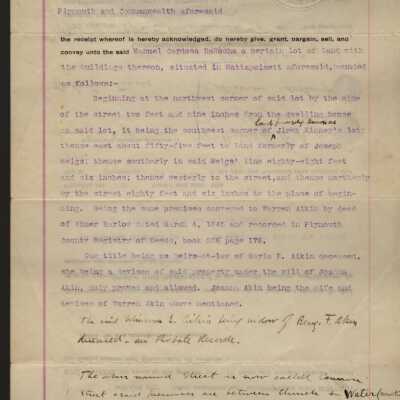 Plymouth and Commonwealth aforesaid
the receipt whereof is hereby acknowledged, do hereby give, grant, bargain, sell, and
convey unto the said Manuel Cardosa DaRocha a certain lot of land with
the buildings thereon, situated in Mattapoisett aforesaid, bounded
as follows:-
Beginning at the northwest corner of said lot by the side
of the street two feet and nine inches from the dwelling house
on said lot, it being the southwest corner of Jireh Kinney's lot;
thence east about fifty-five feet to land formerly of Joseph
Meigs; thence southerly in said Meigs' line eighty-eight feet
and six inches; thence westerly to the street, and thence northerly
by the street eighty feet and six inches to the place of begin-
ning. Being the same premises conveyed to Warren Akin by deed
of Abner Harlow dated March 4, 1846 and recorded in Plymouth
County Registry of Deeds, book page 178.
Our title being as heirs-at-law of N. Akin deceased,
she being a devisee of said property under the will of Joanna
Akin, duly proved and allowed. Joanna Akin being the wife and
devisee of Warren Akin above mentioned.
The said being widow of Benj. F. Akin
deceased - see Probate Records.
The above named Street is now called
Street and premises are between thence &amp; Waterfront